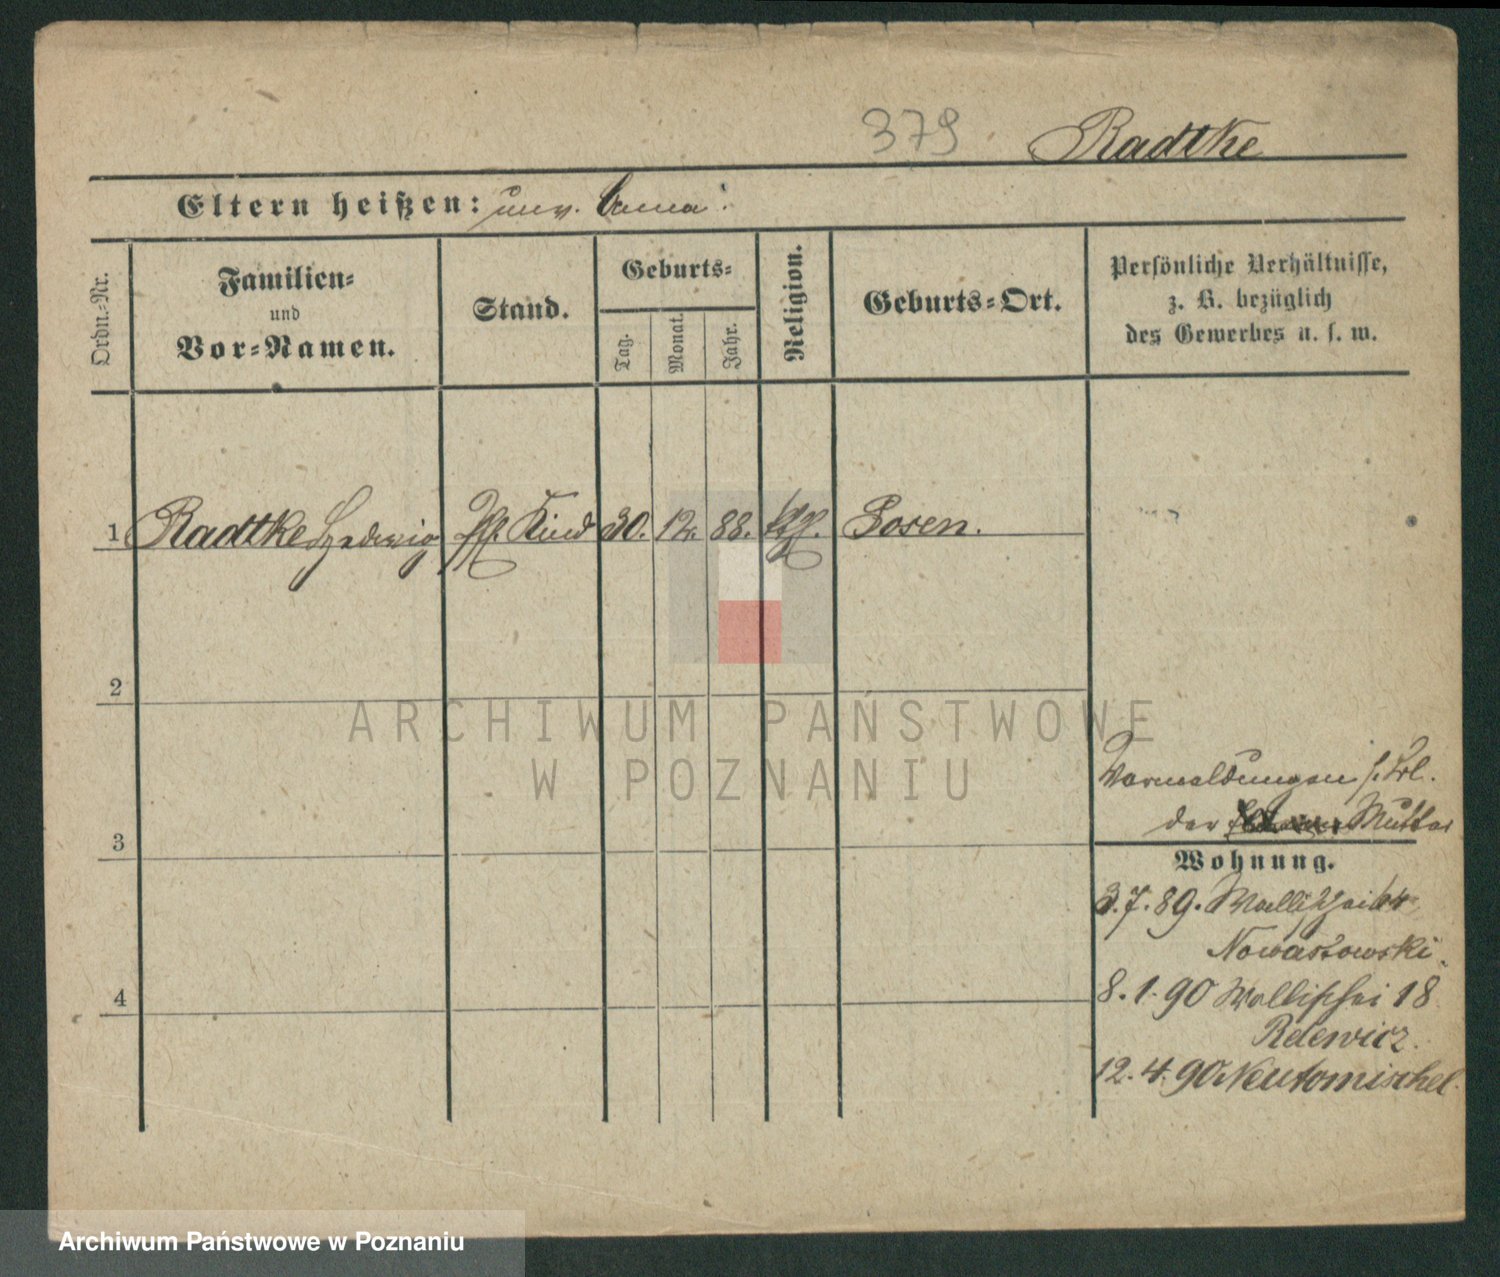 379
Radtke
Eltern heißen: unv. Anna.
Ordn.-Nr.
Familien-
und
Vor-Namen.
Stand.
Geburts-
Tag.
Monat.
Jahr.
Religion.
Geburts-Ort.
Persönliche Verhältnisse,
z. B. bezüglich
des Gewerbes u. s. w.
1 Radtke Hedwig Kind 30. 12. 88. Posen.
2
3
4
ARCHIWUM PAŃSTWOWE
W POZNANIU
Vormeldungen s.
der Mutter
Wohnung.
3.7.89. Wallischei
8.1.90 Wallischei 18
Relewicz.
12.4.90 Neutomischel.
Archiwum Państwowe w Poznaniu